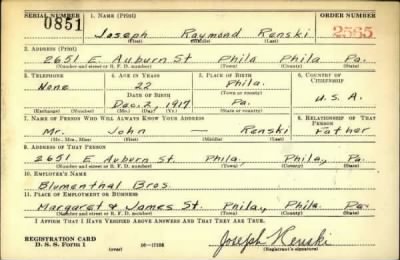 SERIAL NUMBER 1. NAME (Print) ORDER NUMBER
0851 Joseph Raymond Renski 2565
(First) (Middle) (Last)
2. ADDRESS (Print)
2651 E Auburn St Phila Phila Pa.
(Number and street or R. F. D. number) (Town) (County) (State)
3. TELEPHONE 4. AGE IN YEARS 5. PLACE OF BIRTH 6. COUNTRY OF CITIZENSHIP
None 22 Phila.
DATE OF BIRTH (Town or county)
Dec. 2, 1917 Pa. U.S.A.
(Exchange) (Number) (Mo.) (Day) (Yr.) (State or country)
7. NAME OF PERSON WHO WILL ALWAYS KNOW YOUR ADDRESS 8. RELATIONSHIP OF THAT PERSON
Mr. John — Renski Father
(Mr., Mrs., Miss) (First) (Middle) (Last)
9. ADDRESS OF THAT PERSON
2651 E Auburn St. Phila, Phila, Pa.
(Number and street or R. F. D. number) (Town) (County) (State)
10. EMPLOYER'S NAME
Blumenthal Bros.
11. PLACE OF EMPLOYMENT OR BUSINESS
Margaret & James St. Phila, Phila Pa.
(Number and street or R. F. D. number) (Town) (County) (State)
I AFFIRM THAT I HAVE VERIFIED ABOVE ANSWERS AND THAT THEY ARE TRUE.
REGISTRATION CARD
D. S. S. Form 1 (over) 16—17105 Joseph Renski
(Registrant's signature)